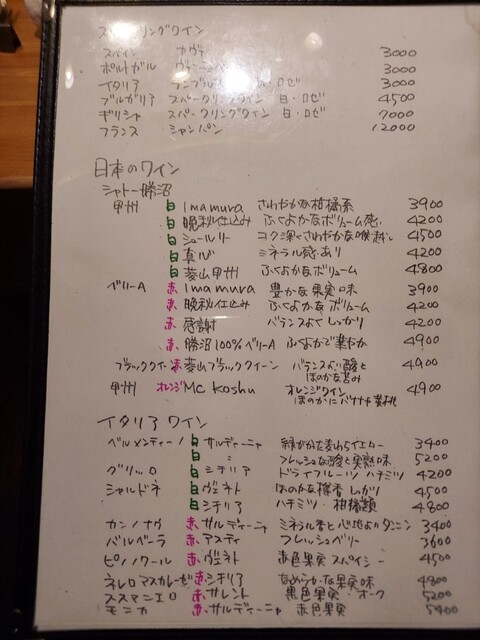 スパークリングワイン
スペイン カヴァ 3000
ポルトガル 3000
イタリア ロゼ 3000
ブルガリア スパークリングワイン 白・ロゼ 4500
ギリシャ スパークリングワイン 白・ロゼ 7000
フランス シャンパン 12000
日本のワイン
シャトー勝沼
甲州 白 Imamura さわやかな柑橘系 3900
白 晩秋仕込み ふくよかなボリューム感 4200
白 シュールリー コク深くさわやかな喉越し 4500
白 真心 ミネラル感あり 4200
白 菱山甲州 ふくよかなボリューム 4800
ベリーA 赤 Imamura 豊かな果実味 3900
赤 晩秋仕込み ふくよかなボリューム 4200
赤 感謝 バランスよくしっかり 4200
赤 勝沼100%ベリーA ふくよかで華やか 4900
ブラッククイーン 赤 菱山ブラッククイーン バランスよい酸と 4900
ほのかな苦み
甲州 オレンジ MC Koshu オレンジワイン 4900
ほのかにバナナや黄桃
イタリアワイン
ベルメンティーノ 白 サルディーニャ 緑がかった麦わらイエロー 3400
白 〃 フレッシュな酸と完熟味 5200
グリッロ 白 シチリア ドライフルーツ ハチミツ 4200
シャルドネ 白 ヴェネト ほのかな樽香 しっかり 4500
白 シチリア ハチミツ・柑橘類 4800
カンノナウ 赤 サルディーニャ ミネラル香と心地よいタンニン 3400
バルベーラ 赤 アスティ フレッシュベリー 3600
ピノノワール 赤 ヴェネト 赤色果実 スパイシー 4500
ネレロマスカレーゼ 赤 シチリア なめらかな果実味 4800
ススマニエロ 赤 サレント 黒色果実・オーク 5200
モニカ 赤 サルディーニャ 赤色果実 5400